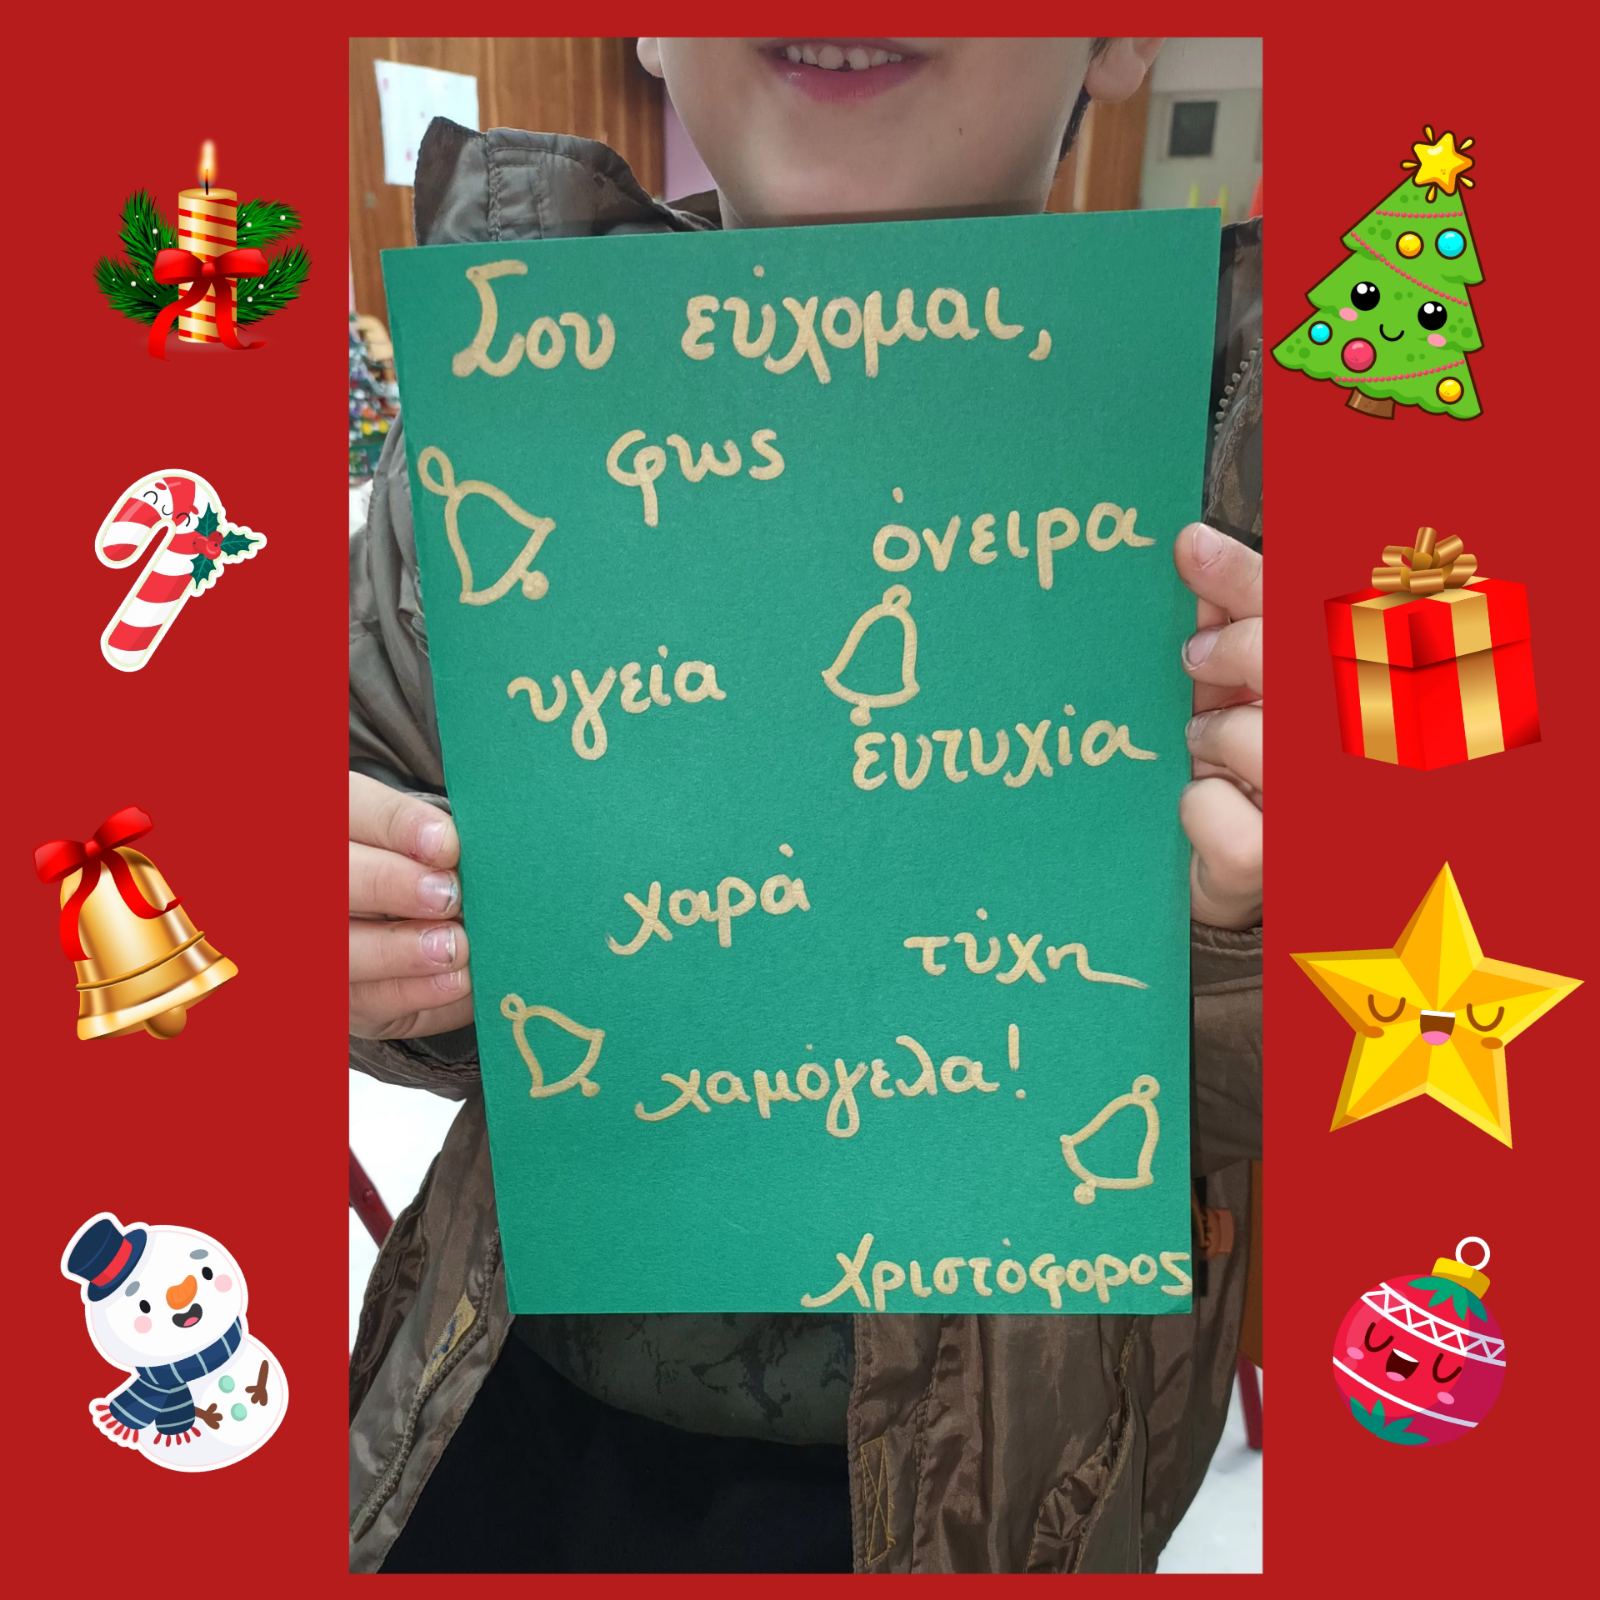 Σου εύχομαι,
φως
όνειρα
υγεία
ευτυχία
χαρά
τύχη
χαμόγελα!
Χριστόφορος